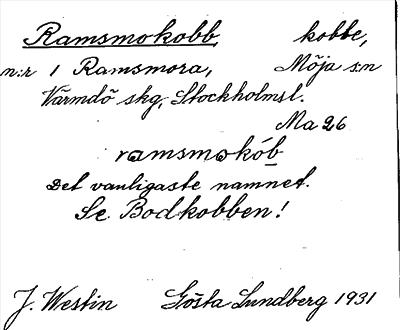 Ramsmokobb, kobbe,
n:r 1 Ramsmora, Möja s:n
Värmdö skg, Stockholmsl.
Ma 26
ramsmokób
Det vanligaste namnet.
Se Bodkobben!
J. Westin Gösta Lundberg 1931